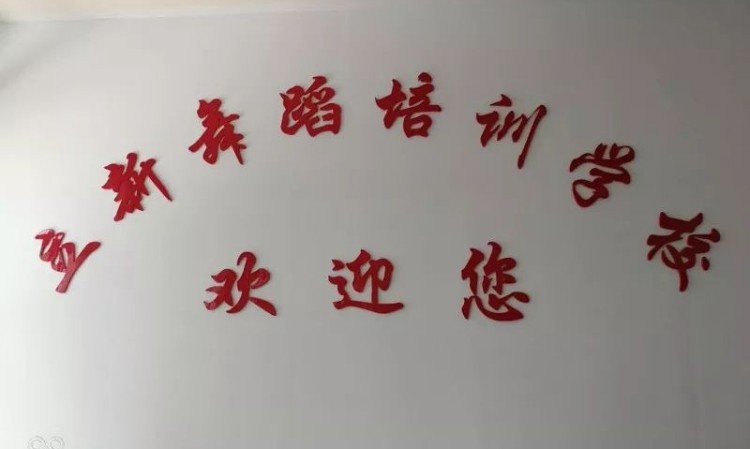 新舞蹈培训学校
欢迎您